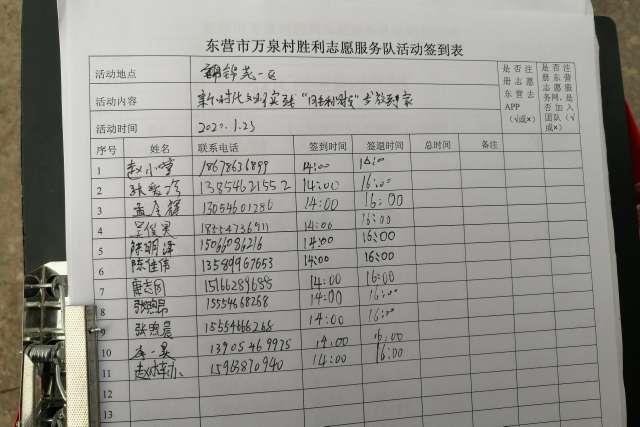 东营市万泉村胜利志愿服务队活动签到表
活动地点 一区
活动内容 新时代文明实践
活动时间 2022.1.23
是否注册志愿东营志APP（√或×）
是否注册东营志愿服务网,是否加入团队（√或×）
序号 姓名 联系电话 签到时间 签退时间 总时间 备注
1 赵小 18678636899 14:00 16:00
2 张 13854621552 14:00 16:00
3 孟 13054601286 14:00 16:00
4 吴俊 18554736911 14:00 16:00
5 陈明泽 15066086216 14:00 16:00
6 陈佳伟 13589967653 14:00 16:00
7 15166289688 14:00 16:00
8 张煦昂 15554668268 14:00 16:00
9 张煦晨 15554668268 14:00 16:00
10 李一昊 13905469975 14:00 16:00
11 赵 15963870940 14:00 16:00
12
13